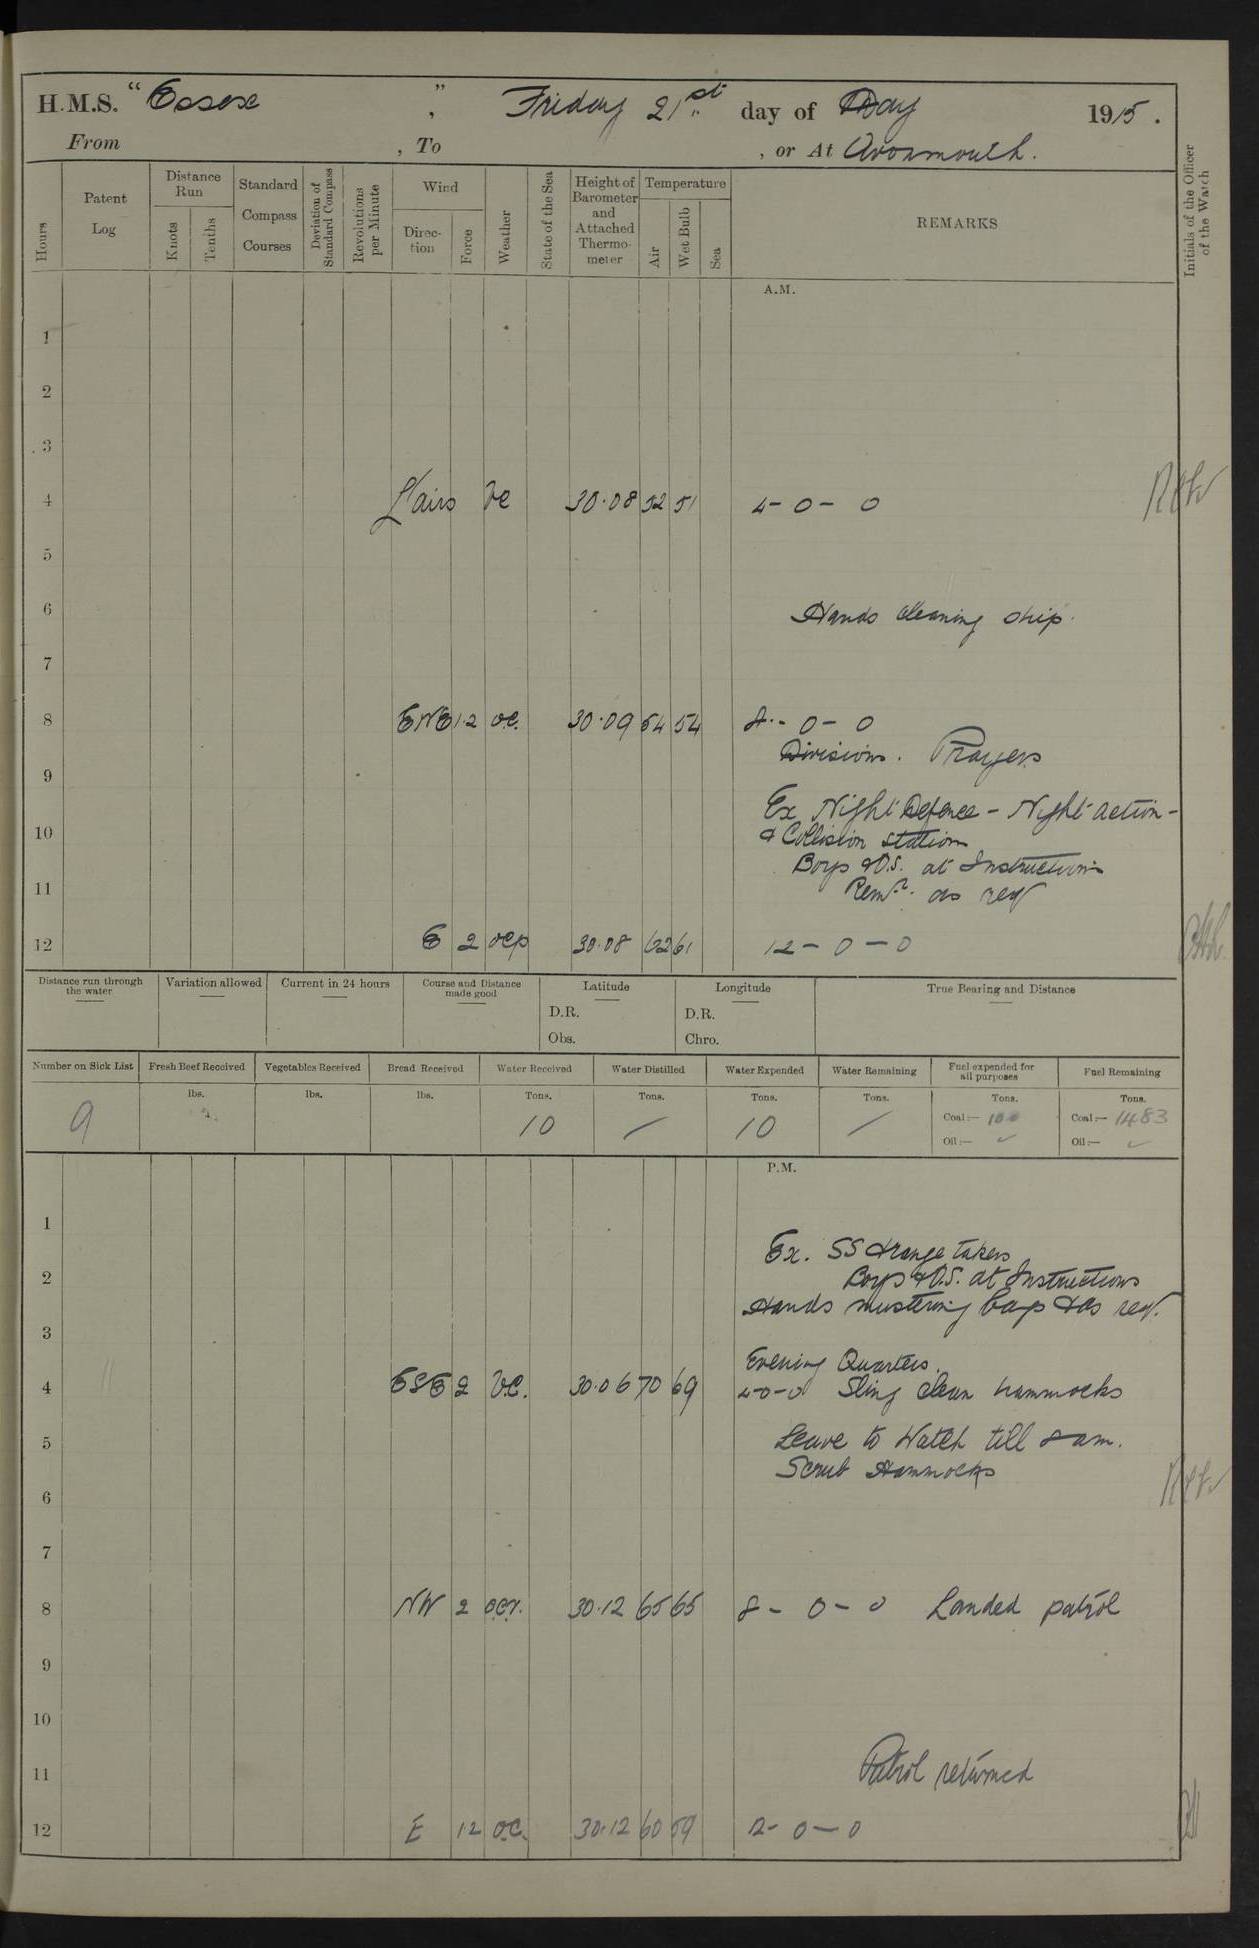 H.M.S. "Essex", Friday 21st day of May 1915.
From , To , or At Avonmouth.
Hours
Patent Log
Distance Run
Knots
Tenths
Standard Compass Courses
Deviation of Standard Compass
Revolutions per Minute
Wind
Direction
Force
Weather
State of the Sea
Height of Barometer and Attached Thermometer
Temperature
Air
Wet Bulb
Sea
REMARKS
Initials of the Officer of the Watch
A.M.
1
2
3
4 L'airs bc 30.08 52 51 4-0-0
5
6 Hands cleaning ship.
7
8 ENE 1.2 o.c. 30.09 54 54 8-0-0
Divisions. Prayers
9
Ex Night Defence - Night action -
10 & Collision stations
Boys & O.S. at Instructions
11 Remr. as req
12 E 2 ocp 30.08 62 61 12-0-0
Distance run through the water
Variation allowed
Current in 24 hours
Course and Distance made good
Latitude
D.R.
Obs.
Longitude
D.R.
Chro.
True Bearing and Distance
Number on Sick List Fresh Beef Received Vegetables Received Bread Received Water Received Water Distilled Water Expended Water Remaining Fuel expended for all purposes Fuel Remaining
lbs. lbs. lbs. Tons. Tons. Tons. Tons. Tons. Tons.
9 10 / 10 / Coal:— 100 Coal:— 1483
Oil:— ✓ Oil:— ✓
P.M.
1
Ex. SS & range takers
2 Boys & O.S. at Instructions
Hands mustering bags & as req.
3
Evening Quarters.
4 ESE 2 b.c. 30.06 70 69 4-0-0 Sling clean hammocks
5 Leave to Watch till 8 am.
Scrub Hammocks
6
7
8 NW 2 o.c.r. 30.12 65 65 8-0-0 Landed patrol
9
10
11 Patrol returned
12 E 1.2 o.c. 30.12 60 59 12-0-0